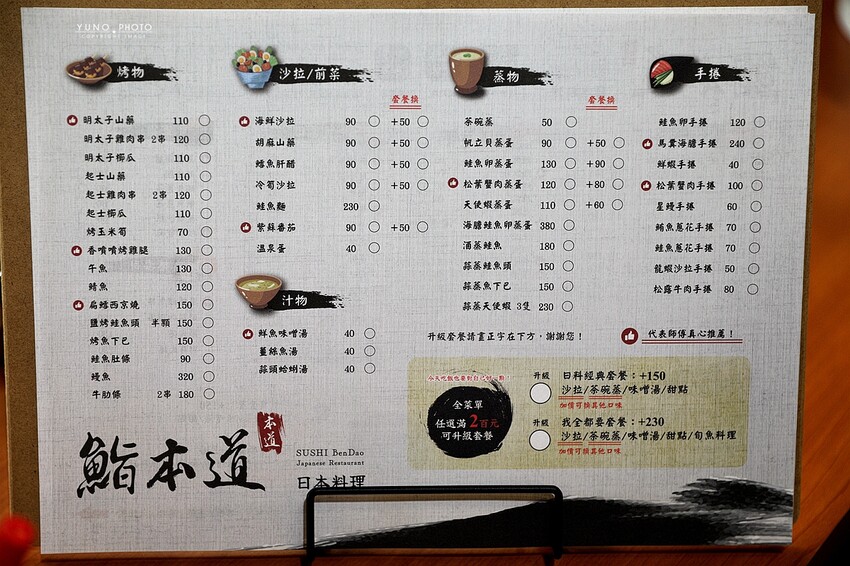 YUNO PHOTO
烤物
明太子山藥 110
明太子雞肉串 2串 120
明太子櫛瓜 110
起士山藥 110
起士雞肉串 2串 120
起士櫛瓜 110
烤玉米筍 70
香噴噴烤雞腿 130
午魚 130
鯖魚 120
扁鱈西京燒 150
鹽烤鮭魚頭 半顆 150
烤魚下巴 150
鮭魚肚條 90
鰻魚 320
牛肋條 2串 180
沙拉/前菜
套餐換
海鮮沙拉 90 +50
胡麻山藥 90 +50
鱈魚肝醋 90 +50
冷筍沙拉 90 +50
鮭魚麵 230
紫蘇番茄 90 +50
溫泉蛋 40
汁物
鮮魚味噌湯 40
薑絲魚湯 40
蒜頭蛤蜊湯 40
蒸物
套餐換
茶碗蒸 50
帆立貝蒸蛋 90 +50
鮭魚卵蒸蛋 130 +90
松葉蟹肉蒸蛋 120 +80
天使蝦蒸蛋 110 +60
海膽鮭魚卵蒸蛋 380
酒蒸鮭魚 180
蒜蒸鮭魚頭 150
蒜蒸魚下巴 150
蒜蒸天使蝦 3隻 230
手捲
鮭魚卵手捲 120
馬糞海膽手捲 240
鮮蝦手捲 40
松葉蟹肉手捲 100
星鰻手捲 60
鮪魚蔥花手捲 70
鮭魚蔥花手捲 70
龍蝦沙拉手捲 50
松露牛肉手捲 80
升級套餐請畫正字在下方,謝謝您!
代表師傅真心推薦!
今天吃飯也要對自己好一點!
全菜單
任選滿2百元
可升級套餐
升級 日料經典套餐:+150
沙拉/茶碗蒸/味噌湯/甜點
加價可換其他口味
升級 我全都要套餐:+230
沙拉/茶碗蒸/味噌湯/甜點/旬魚料理
加價可換其他口味
鮨本道
本道
SUSHI BenDao
Japanese Restaurant
日本料理